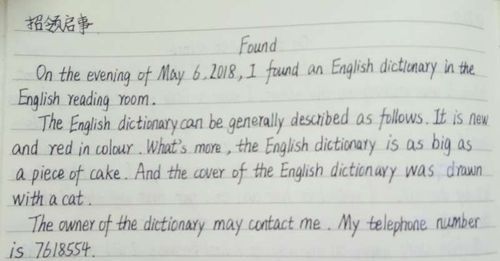 招领启事
Found
On the evening of May 6.2018, I found an English dictionary in the
English reading room.
The English dictionary can be generally described as follows. It is new
and red in colour. What's more, the English dictionary is as big as
a piece of cake. And the cover of the English dictionary was drawn
with a cat.
The owner of the dictionary may contact me. My telephone number
is 7618554.